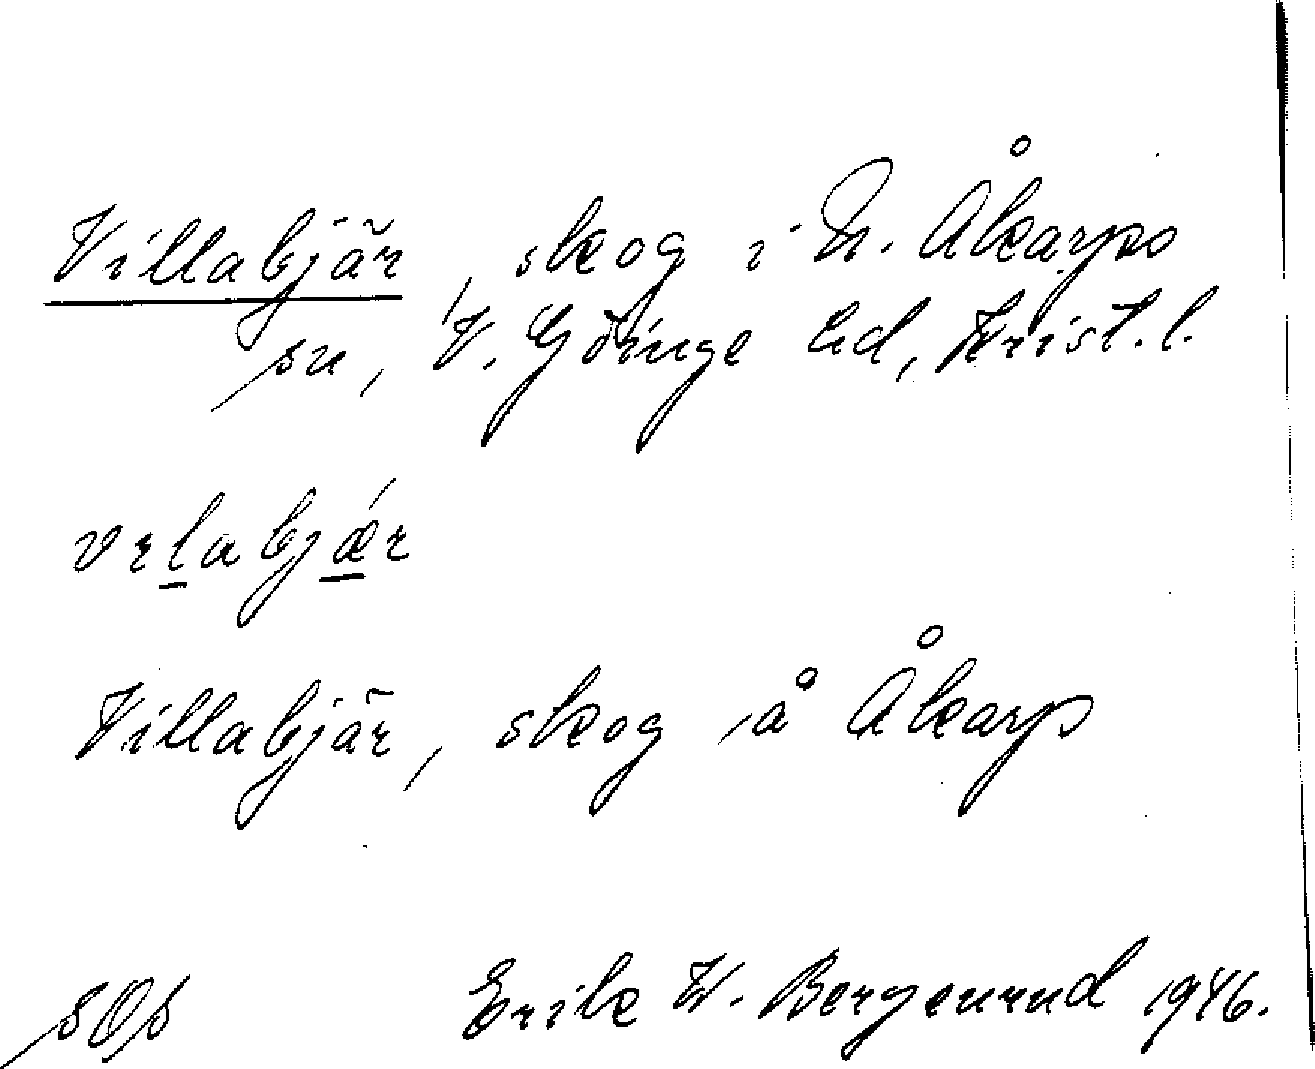 Villabjär, skog i N. Åkarps
sn, V. Göinge hd, Krist. l.
vɪlabjǽr
Villabjär, skog å Åkarp
sOs Erik W. Bergenrud 1946.